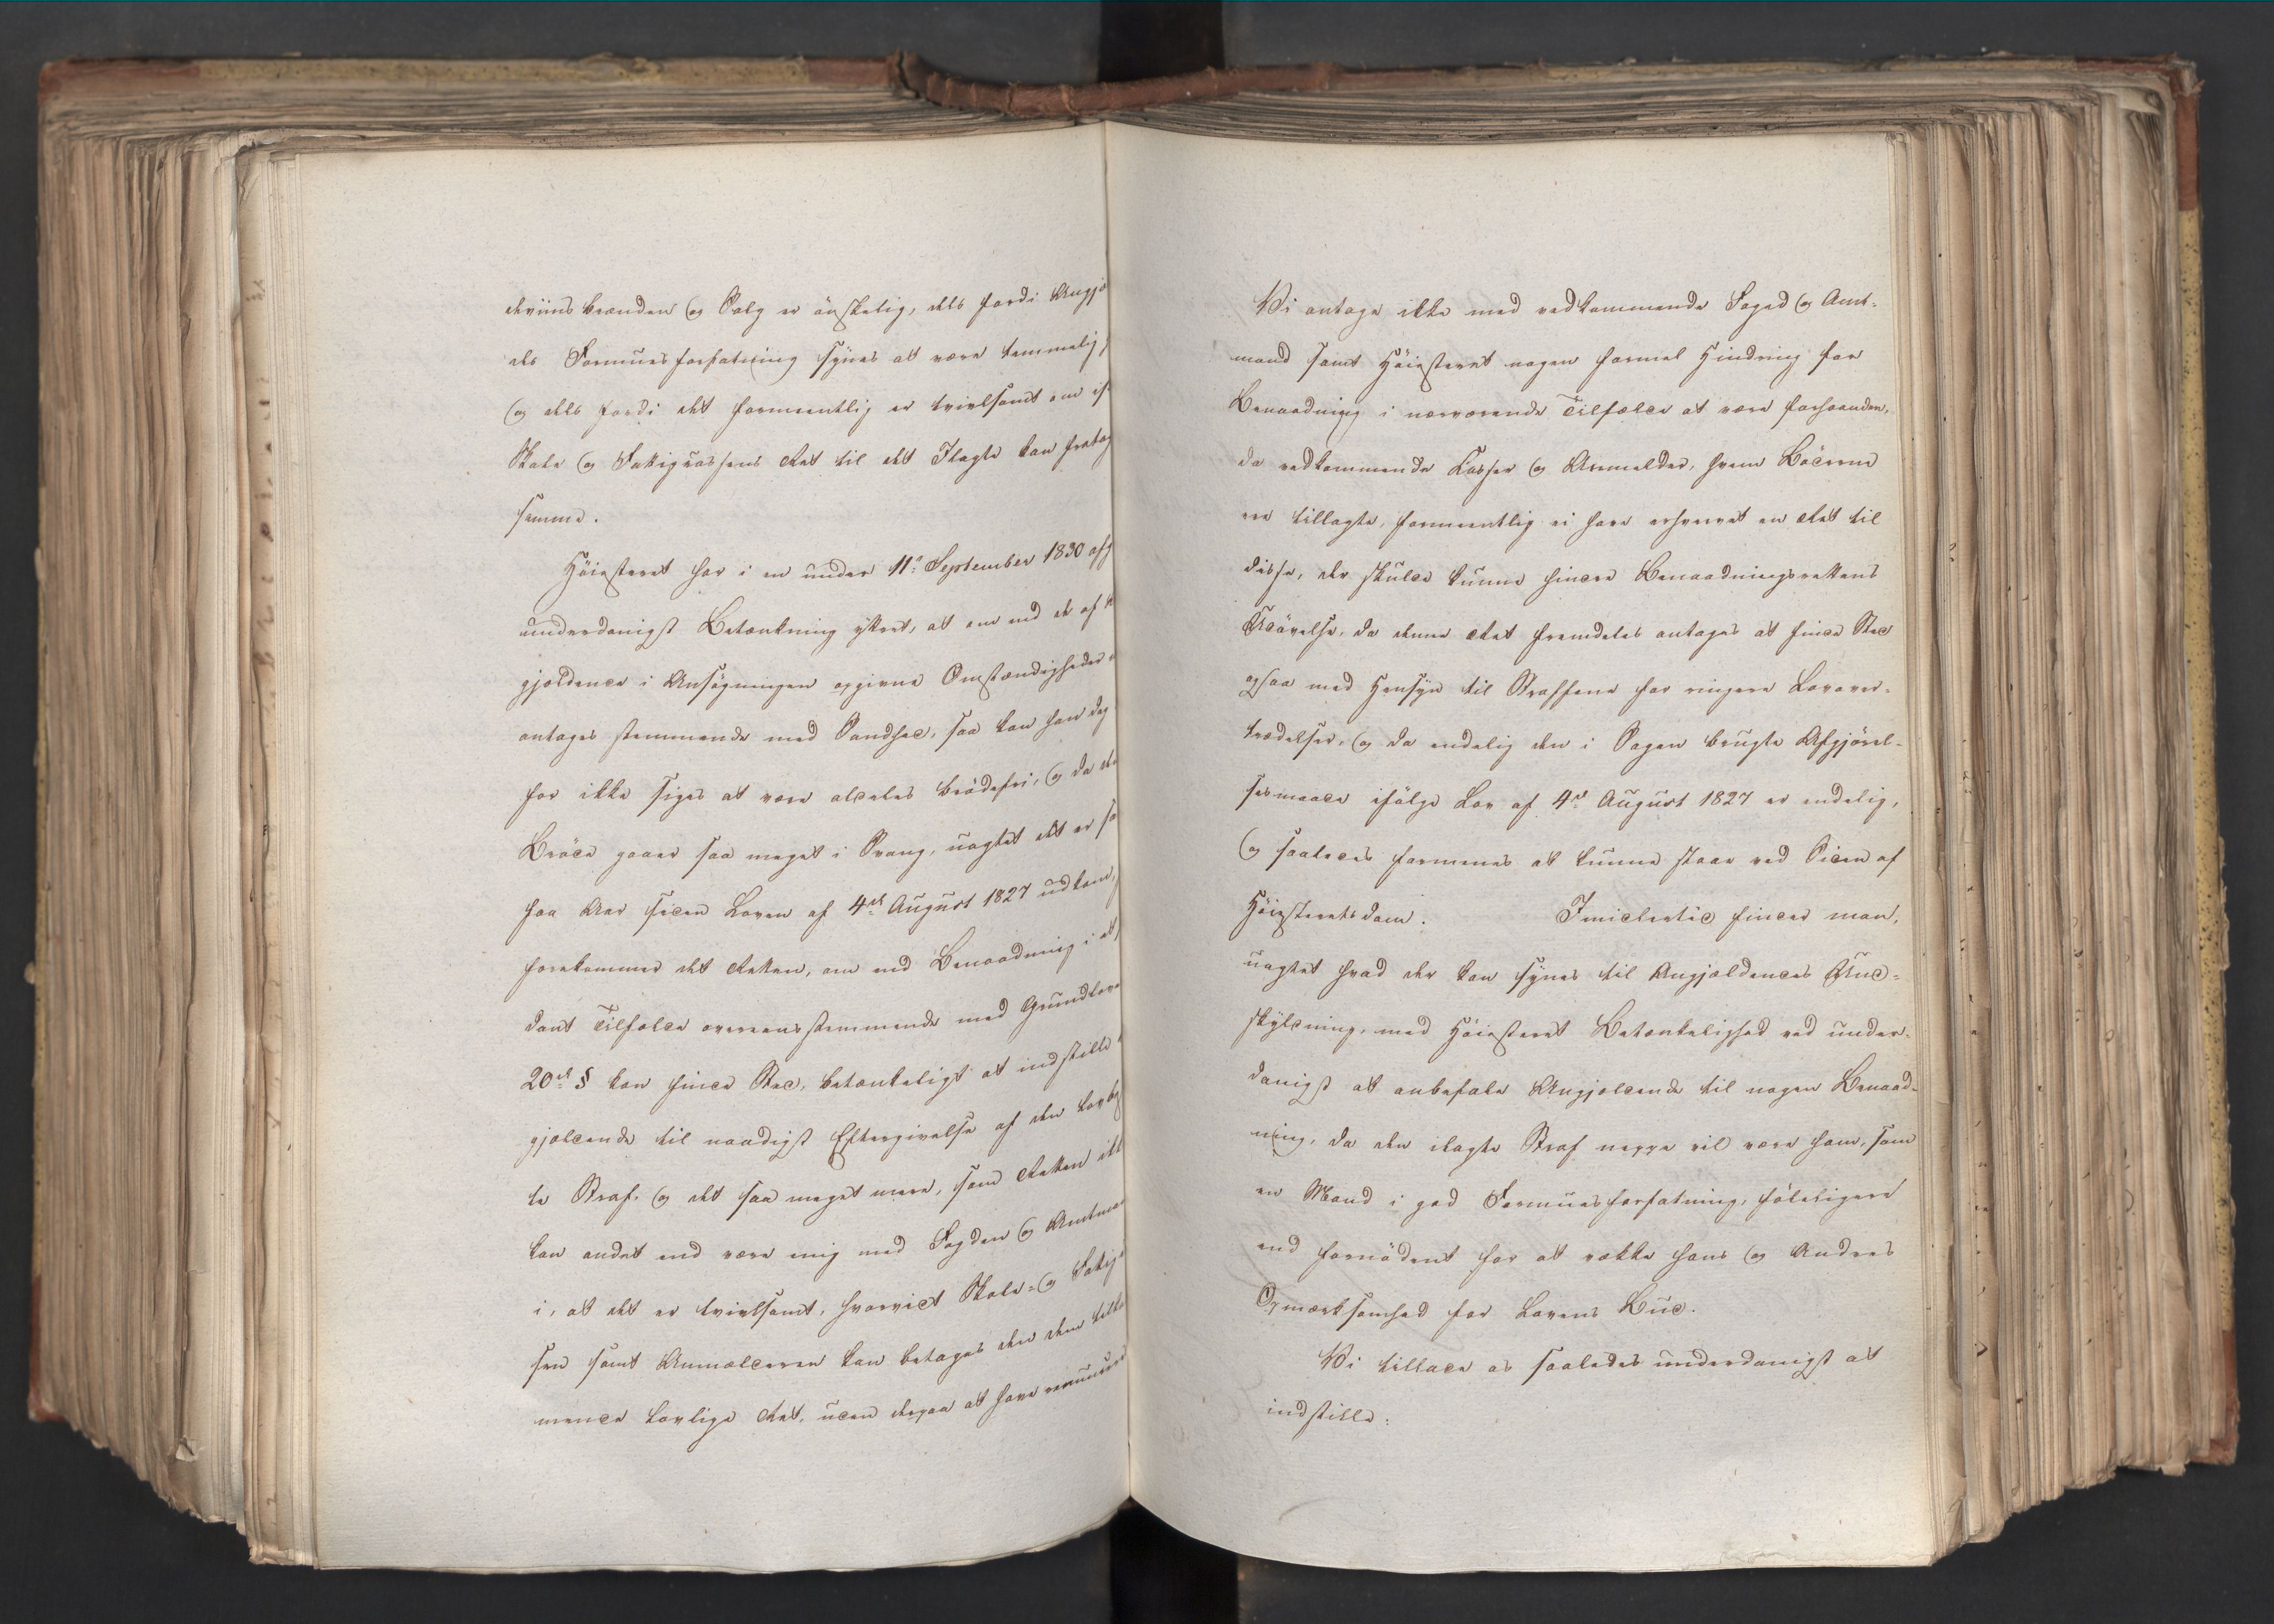 deviinsbrænden og Salg er önskelig, dels fordi Angjæ
des Formuesforfatning synes at være temmelig g
og dels fordi det formeentlig er tvivlsomt om ei
Skole og Fattigkassens Ret til det Ilagte kan fratag
samme.
Höiesteret har i en under 11te September 1830 afg
underdanigst Betænkning yttret, at om end de af A
gjældende i Ansögningen opgivne Omstændigheder
antages stemmende med Sandhed, saa kan han deg
for ikke siges at være aldeles brödefri, og da de
Bröde gaaer saa meget i Svang, uagtet det er saa
faa Aar siden Loven af 4de August 1827 udkom,
forekommer det Retten, om end Benaadning i et s
dant Tilfælde overeensstemmende med Grundlove
20de § kan finde Sted, betænkeligt at indstille
gjældende til naadigst Eftergivelse af den lovbe
te Straf, og det saa meget mere, som Retten ikk
kan andet end være enig med Fogden og Amtman
i, at det er tvivlsomt, hvorvidt Skole- og Fattig
sen samt Anmælderen kan betages den dem tilko
mende lovlige Ret, uden derpaa at have renuncer
Vi antage ikke med vedkommende Foged og Amt-
mand samt Höiesteret nogen formel Hindring for
Benaadning i nærværende Tilfælde at være forhaanden,
da vedkommende Kasser og Anmelder, hvem Böderne
ere tillagte, formeentlig ei have erhvervet en Ret til
disse, der skulde kunne hindre Benaadningsrettens
Udövelse, da denne Ret fremdeles antages at finde Sted
ogsaa med Hensyn til Straffene for ringere Lovover-
trædelser, og da endelig den i Sagen brugte Afgjörel-
sesmaade ifölge Lov af 4de August 1827 er endelig,
og saaledes formenes at kunne staae ved Siden af
Höiesteretsdom. Imidlertid finder man,
uagtet hvad der kan synes til Angjældendes Und-
skyldning, med Höiesteret Betænkelighed ved under-
danigst at anbefale Angjældende til nogen Benaad-
ning, da den ilagte Straf neppe vil være ham, som
en Mand i god Formuesforfatning, föleligere
end fornödent for at vække hans og Andres
Opmærksomhed for Lovens Bud.
Vi tillade os saaledes underdanigst at
indstille: